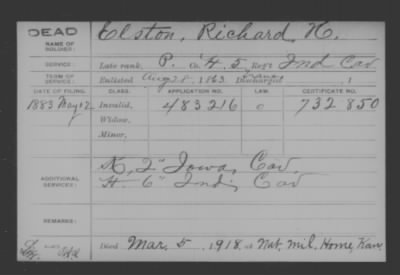 DEAD Elston, Richard N.
NAME OF SOLDIER:
SERVICE: Late rank, P. Co. H. 5, Reg't Ind Cav
TERM OF SERVICE: Enlisted Aug 28, 1863 Discharged , 1
DATE OF FILING. CLASS. APPLICATION NO. LAW. CERTIFICATE NO.
1883 May 12 Invalid, 483216 0 732850
Widow,
Minor,
ADDITIONAL SERVICES: K, 2" Iowa, Cav.
H. 6" Ind, Cav
REMARKS:
Died Mar. 5, 1918, at Nat. Mil. Home, Kan.